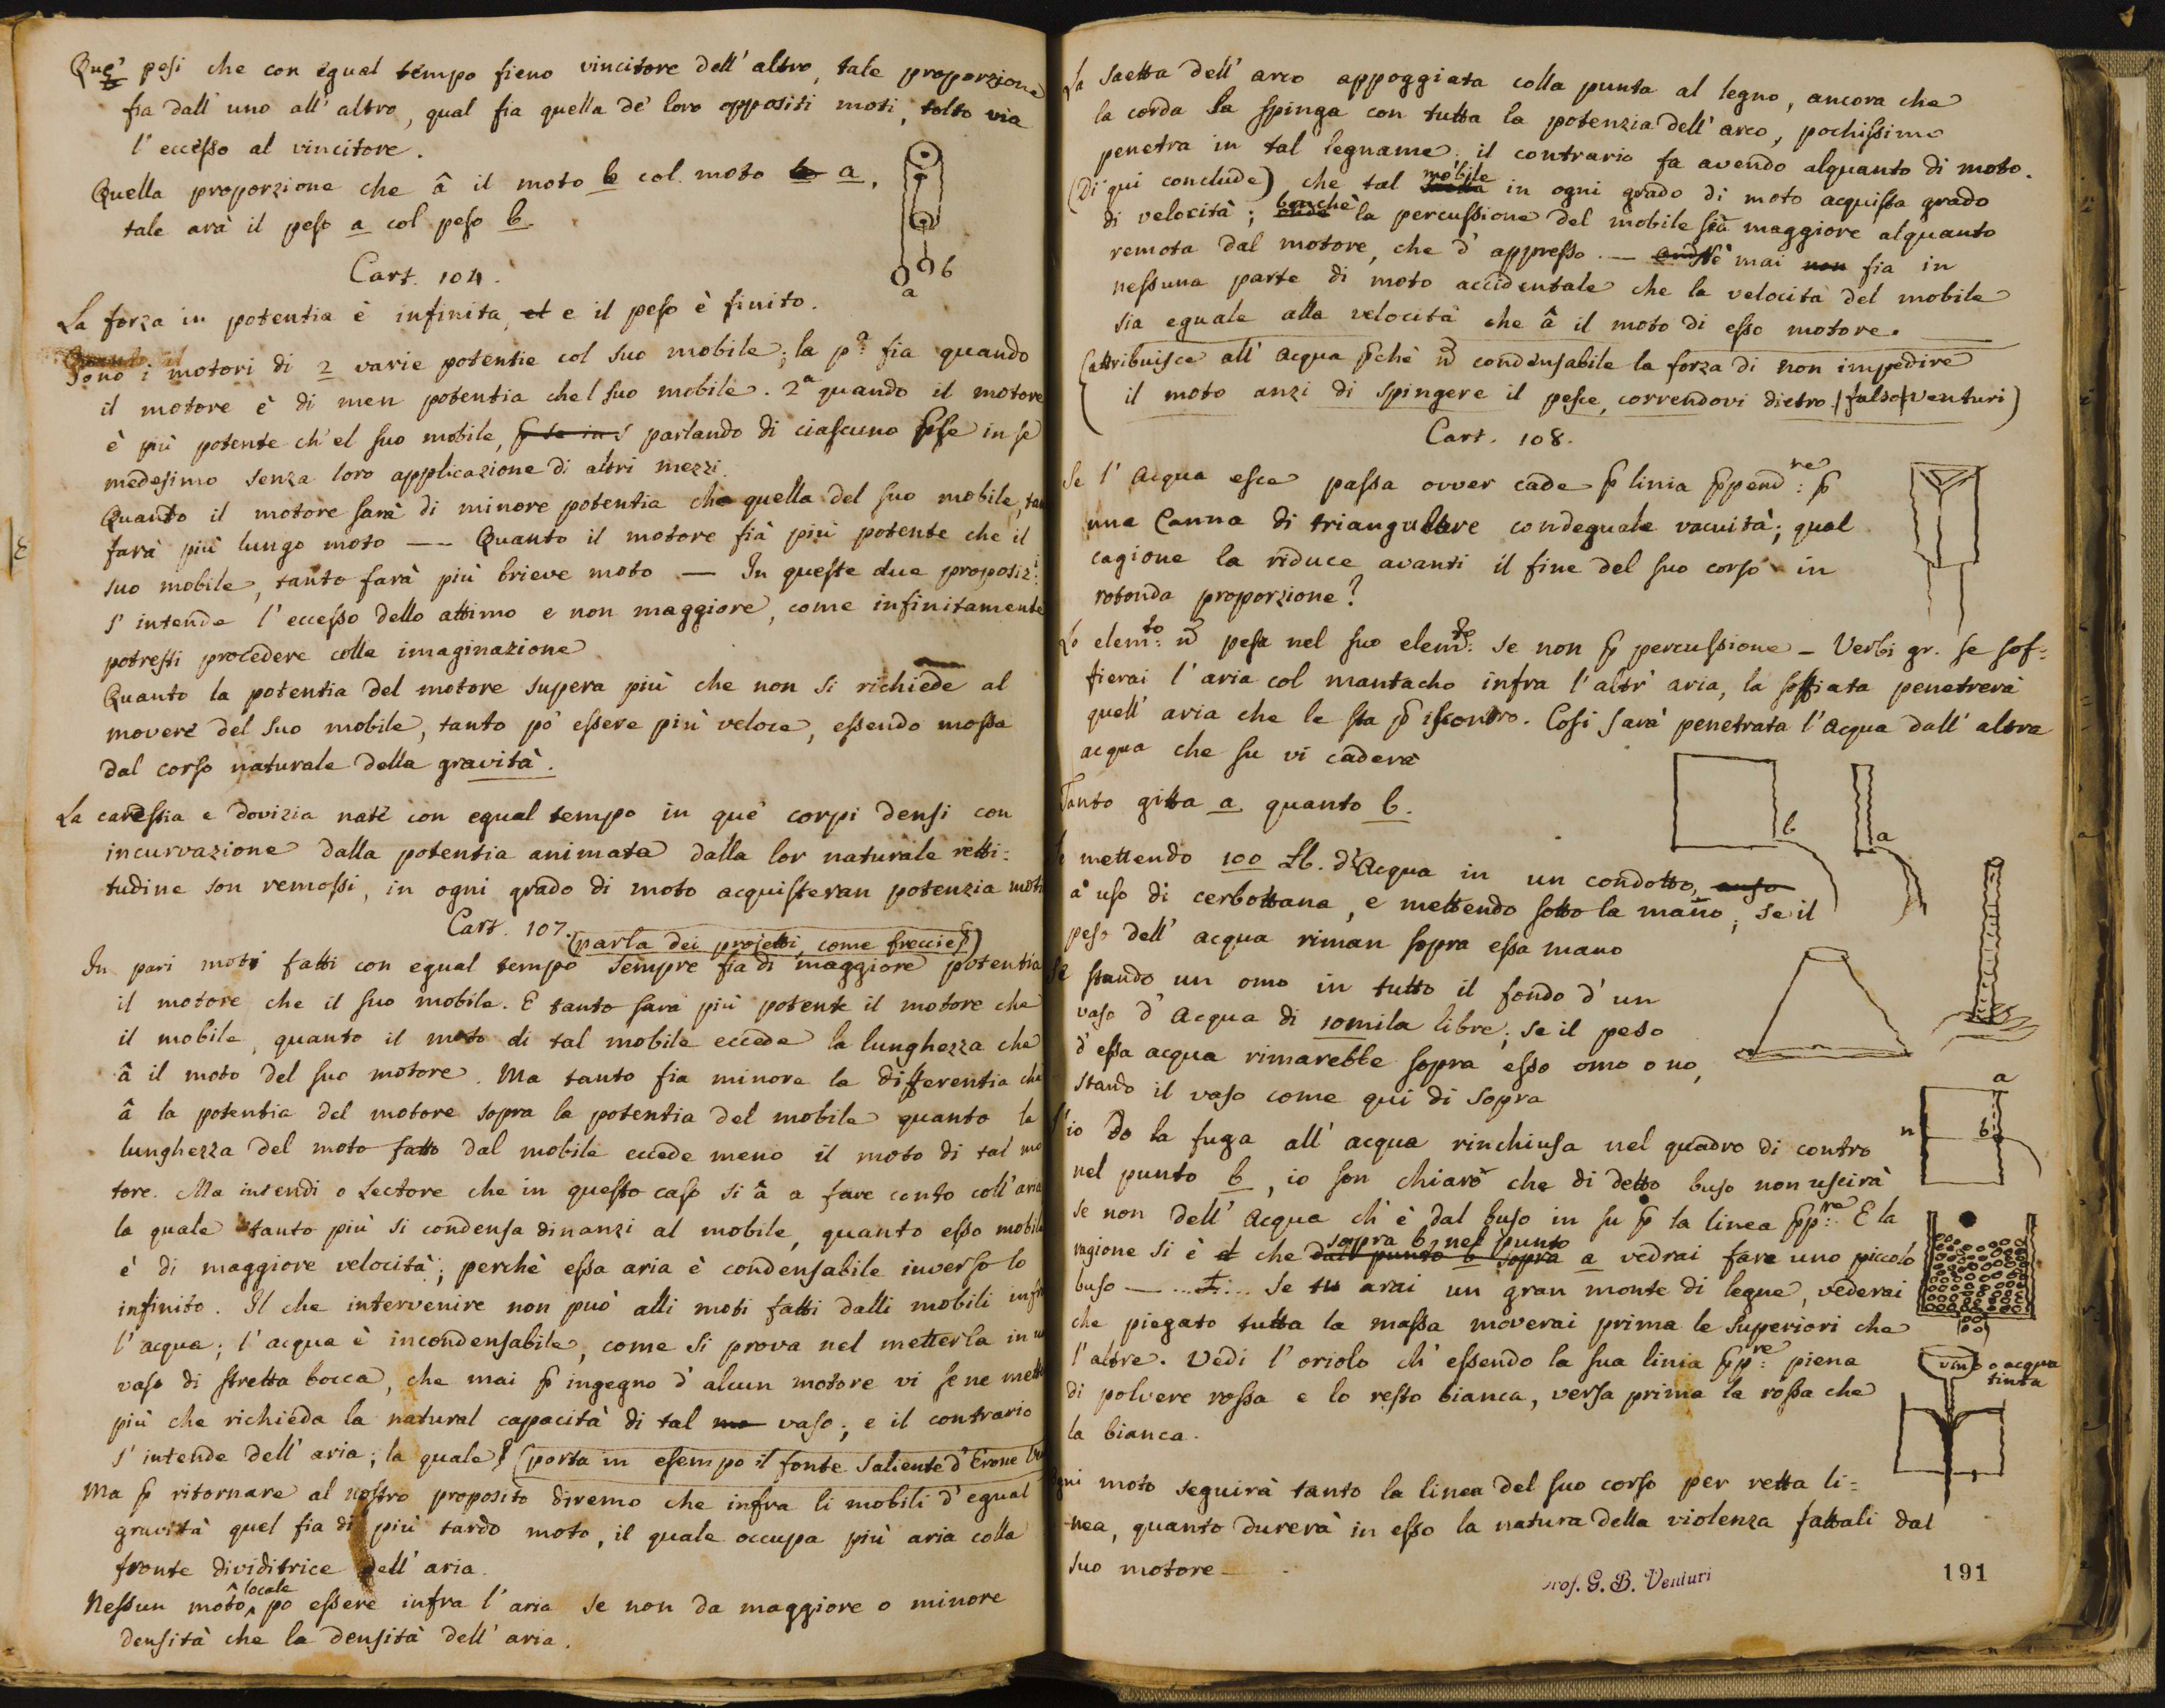 Que' pesi che con egual tempo fieno vincitore dell' altro, tale proporzione
fia dall' uno all' altro, qual fia quella de' loro oppositi moti, tolto via
l' eccesso al vincitore.
Quella proporzione che â il moto b col moto b a,
tale arà il peso a col peso b.
b
a
Cart. 104.
La forza in potentia è infinita, et e il peso è finito.
Sono i motori di 2 varie potentie col suo mobile; la pa fia quando
il motore è di men potentia chel suo mobile. 2a quando il motore
è più potente ch' el suo mobile, parlando di ciascuno p se in se
medesimo senza loro applicazione di altri mezzi.
Quanto il motore sarà di minore potentia che quella del suo mobile, tan
farà più lungo moto — Quanto il motore fià più potente che il
suo mobile, tanto farà più brieve moto — In queste due proposizi:
s' intende l' eccesso dello attimo e non maggiore, come infinitamente
potresti procedere colla imaginazione
Quanto la potentia del motore supera più che non si richiede al
movere del suo mobile, tanto pò essere più veloce, essendo mossa
dal corso naturale della gravità.
La carestia e dovizia nate con egual tempo in que' corpi densi con
incurvazione dalla potentia animata dalla lor naturale retti:
tudine son remossi, in ogni grado di moto acquisteran potenzia moti
Cart. 107. (parla dei projetti come freccie)
In pari moti fatti con egual tempo sempre fia di maggiore potentia
il motore che il suo mobile. E tanto sara più potente il motore che
il mobile, quanto il moto di tal mobile eccede la lunghezza che
â il moto del suo motore. Ma tanto fia minore la differentia che
â la potentia del motore sopra la potentia del mobile quanto la
lunghezza del moto fatto dal mobile eccede meno il moto di tal mo
tore. Ma intendi o Lectore che in questo caso si â a fare conto coll' aria
la quale tanto più si condensa dinanzi al mobile, quanto esso mobile
è di maggiore velocità; perchè essa aria è condensabile inverso lo
infinito. Il che intervenire non può alli moti fatti dalli mobili infra
l' acqua; l' acqua è incondensabile, come si prova nel metterla in un
vaso di stretta bocca, che mai p ingegno d' alcun motore vi se ne mette
più che richieda la natural capacità di tal mo vaso; e il contrario
s' intende dell' aria; la quale (porta in esempo il fonte saliente d' Erone
Ma p ritornare al nostro proposito diremo che infra li mobili d' egual
gravità quel fia di più tardo moto, il quale occupa più aria colla
fronte dividitrice dell' aria.
Nessun moto locale po essere infra l' aria se non da maggiore o minore
densità che la densità dell' aria.
La saetta dell' arco appoggiata colla punta al legno, ancora che
la corda la spinga con tutta la potenzia dell' arco, pochissimo
penetra in tal legname; il contrario fa avendo alquanto di moto.
(Di qui conclude) che tal saetta mobile in ogni grado di moto acquista grado
di velocità; onde benchè la percussione del mobile sia maggiore alquanto
remota dal motore, che d' appresso. — mai non fia in
nessuna parte di moto accidentale che la velocità del mobile
sia eguale alla velocità che â il moto di esso motore.
(attribuisce all' acqua pchè ñ condensabile la forza di non impedire
il moto anzi di spingere il pesce, correndovi dietro (falso) Venturi)
Cart. 108.
Se l' acqua esce passa ovver cade p linia ppendre: p
una Canna di triangulare condeguale vacuità; qual
cagione la riduce avanti il fine del suo corso in
rotonda proporzione?
Lo elemto: ñ pesa nel suo elemto: se non p percussione — Verbi gr. se sof=
fierai l' aria col mantacho infra l' altr' aria, la soffiata penetrerà
quell' aria che le sta p iscontro. Così sarà penetrata l' acqua dall' altra
acqua che su vi caderà
Tanto gitta a quanto b.
b
a
Se mettendo 100 Lb. d' Acqua in un condotto, auso
a uso di cerbottana, e mettendo sotto la mano; se il
peso dell' acqua riman sopra essa mano
Se stando un omo in tutto il fondo d' un
vaso d' Acqua di 10mila libre; se il peso
d' essa acqua rimarebbe sopra esso omo o no,
stando il vaso come qui di sopra
a
n
b
S' io do la fuga all' acqua rinchiusa nel quadro di contro
nel punto b, io son chiaro che di detto buso non uscirà
se non dell' Acqua ch' è dal buso in su p la linea ppre: E la
ragione si è et che dall punto b sopra sopra b nel punto a vedrai fare uno piccolo
buso — ... Se tu arai un gran monte di legne, vederai
che piegato tutta la massa moverai prima le superiori che
l' altre. Vedi l' oriolo ch' essendo la sua linia ppre: piena
di polvere rossa e lo resto bianca, versa prima la rossa che
la bianca.
vino o acqua
tinta
Ogni moto seguirà tanto la linea del suo corso per retta li=
nea, quanto durerà in esso la natura della violenza fattali dal
suo motore
Prof. G. B. Venturi
191